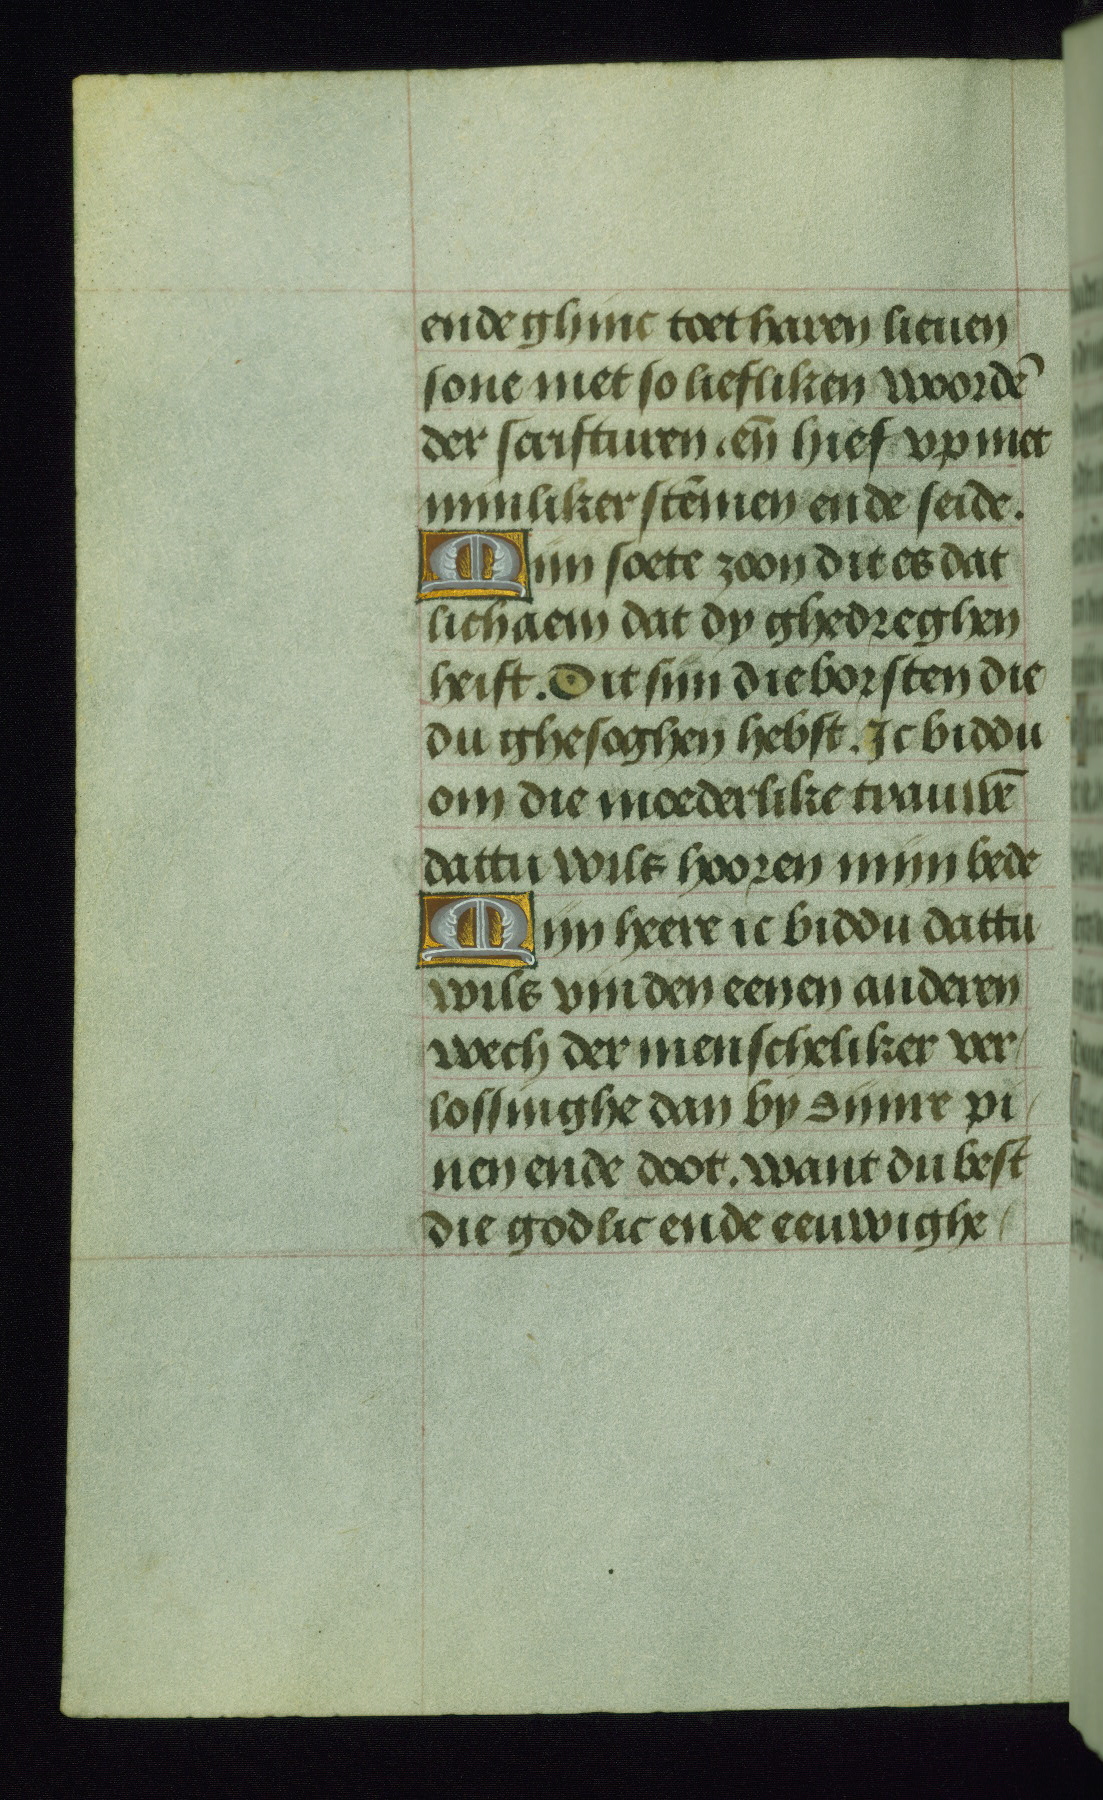 ende ghinc toet haren lieuen
sone met so liefliken woordē
der scrifturen .eñ hief vp met
minliker stēmen ende seide.
Miin soete zoon dit es dat
lichaem dat dy ghedreghen
heift. Dit siin die borsten die
du ghesoghen hebst. Ic biddu
om die moederlike trauwē
dattu wils hooren miin bede
Miin heere ic biddu dattu
wils vinden eenen anderen
wech der menscheliker ver/
lossinghe dan by diinre pi/
nen ende doot. want du best
die godlic ende eeuwighe /